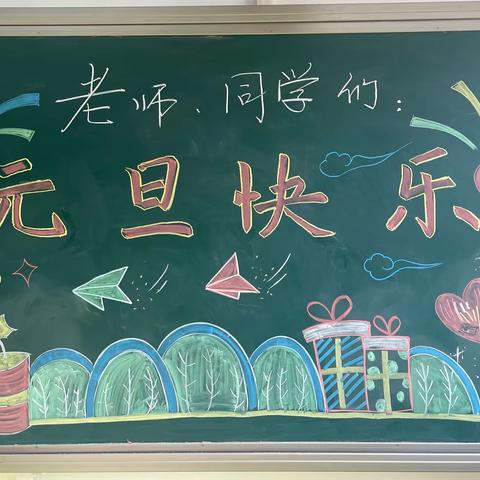 老师、同学们：
元旦快乐